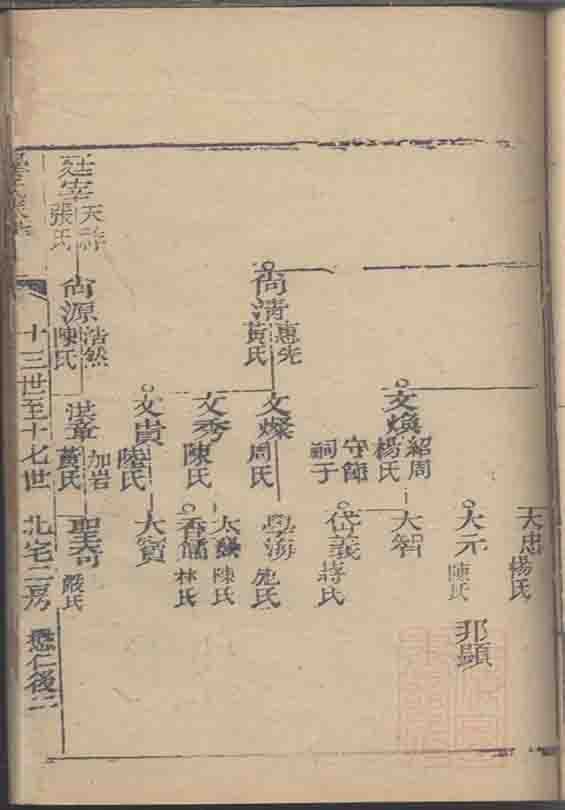 大忠
楊氏
大示
陳氏
邦顯
文煥
紹周
楊氏
守節
嗣子
大智
岱義
蔣氏
尚清
惠先
黃氏
文燦
周氏
學海
施氏
文秀
陳氏
陳氏
香儒
林氏
文貴
陸氏
大寶
廷宰
天祐
張氏
尚源
浩然
陳氏
洪章
加岩
黃氏
聖奇
嚴氏
十三世至十七世
北宅二房
懋仁後